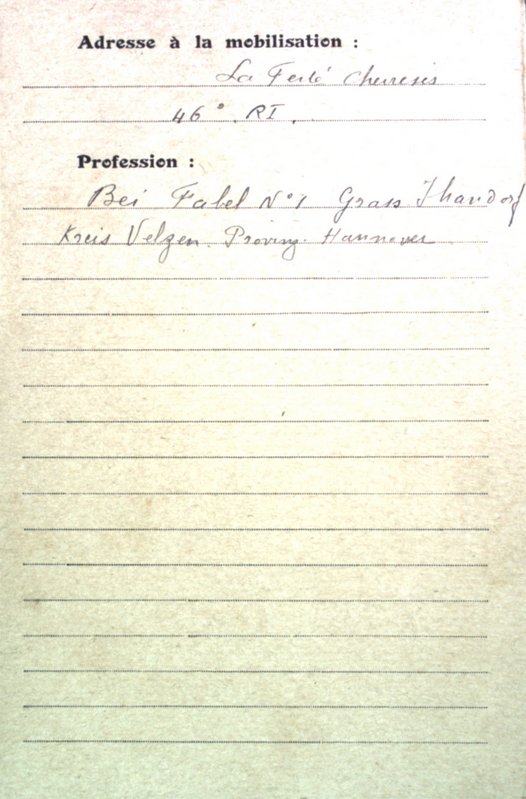 Adresse à la mobilisation :
La Ferté Chevresis
46° RI.
Profession :
Bei Fabel N°1 Grass Thondorf
Kreis Velzen. Provinz. Hannover